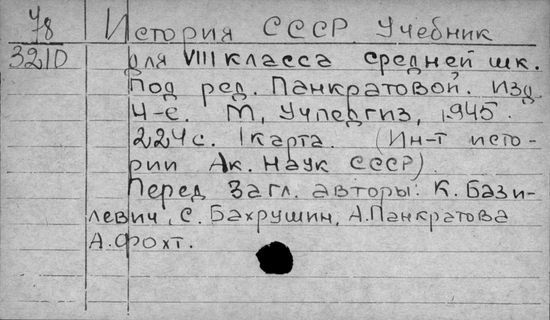 У8 История СССР Учебник
321D для VIII класса средней шк.
Под ред. Панкратовой. Изд
4-е. М, Учпедгиз, 1945.
224 с. 1 карта. (Ин-т исто-
рии Ак. Наук СССР)
Перед загл. авторы: К. Бази-
левич, С. Бахрушин, А. Панкратова
А. Фохт.